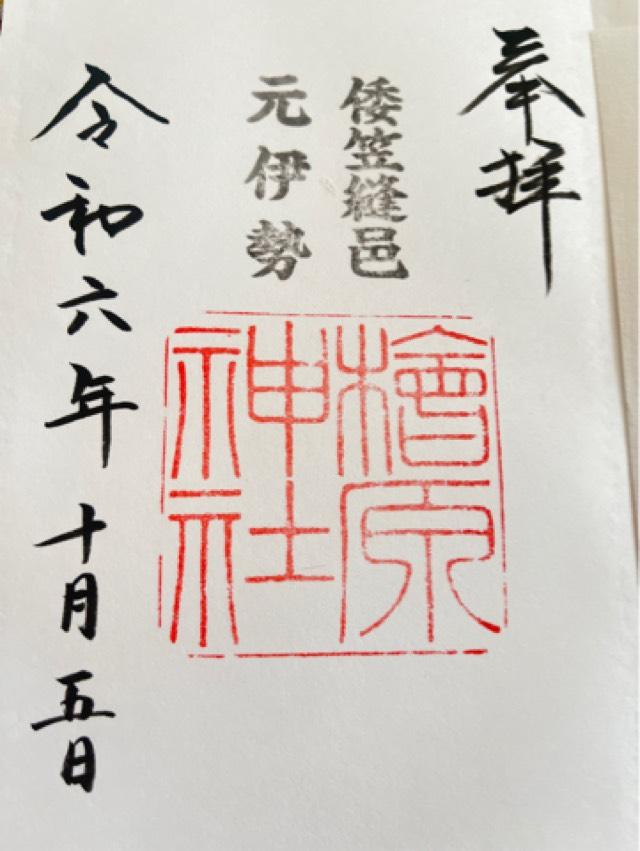 奉拝
倭笠縫邑
元伊勢
檜原
神社
令和六年十月五日